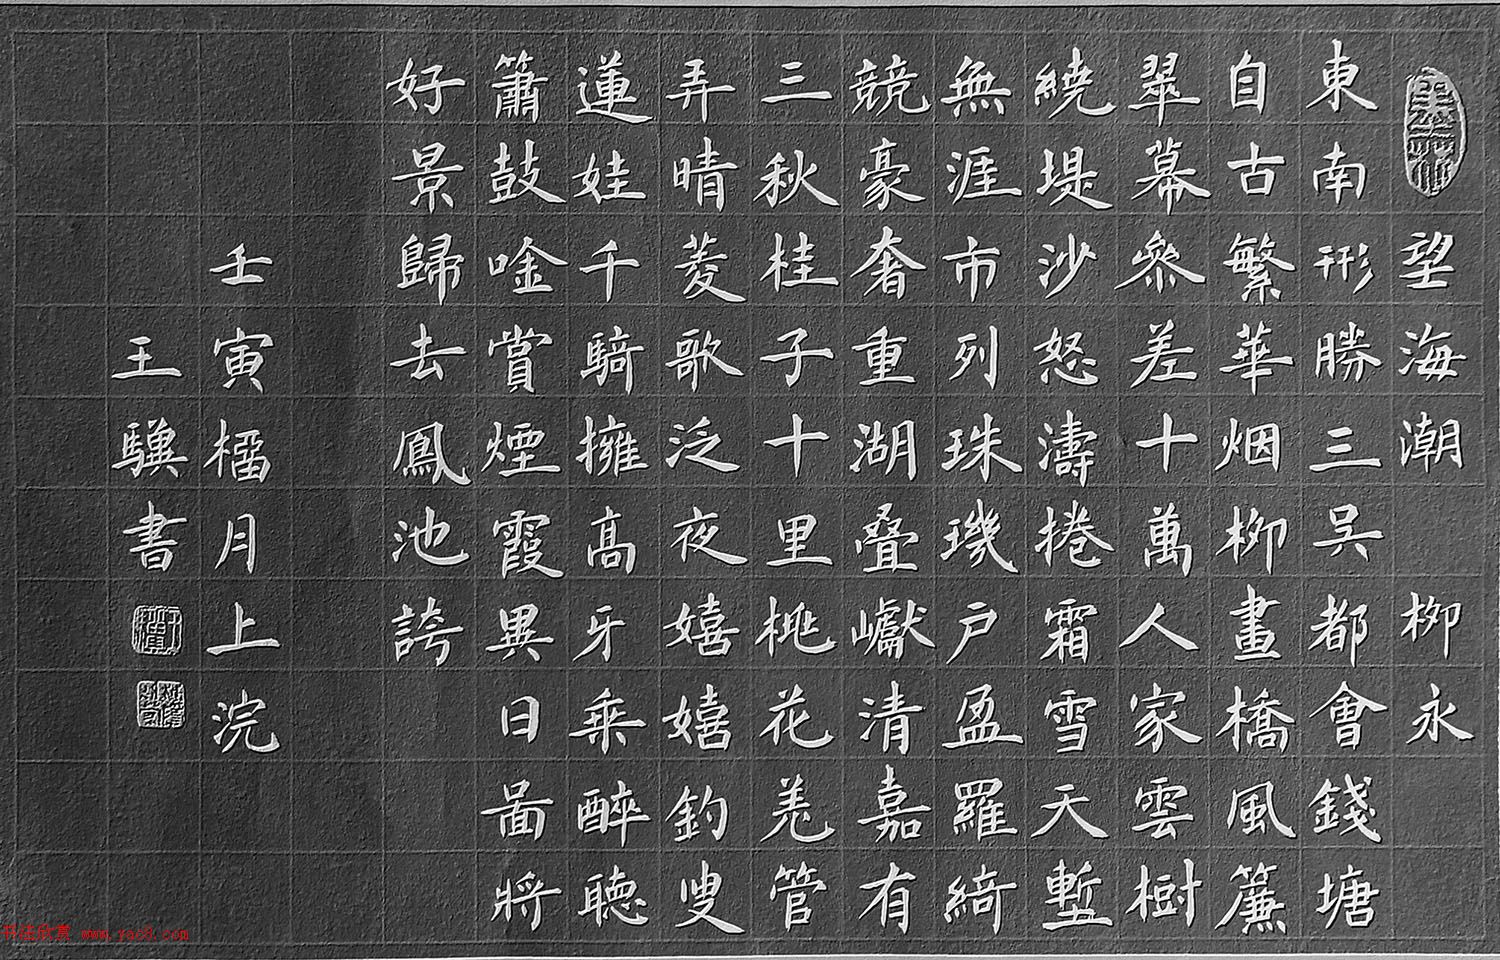 望海潮 柳永
東南形勝三吴都會錢塘
自古繁華烟柳畫橋風簾
翠幕叅差十萬人家雲樹
繞堤沙怒濤捲霜雪天塹
無涯市列珠璣户盈羅綺
競豪奢重湖叠巘清嘉有
三秋桂子十里桃花羌管
弄晴菱歌泛夜嬉嬉釣叟
蓮娃千騎擁高牙乘醉聽
簫鼓唫賞煙霞異日畐將
好景歸去鳳池誇
壬寅橊月上浣
王驥書
书法欣赏 www.yac8.com